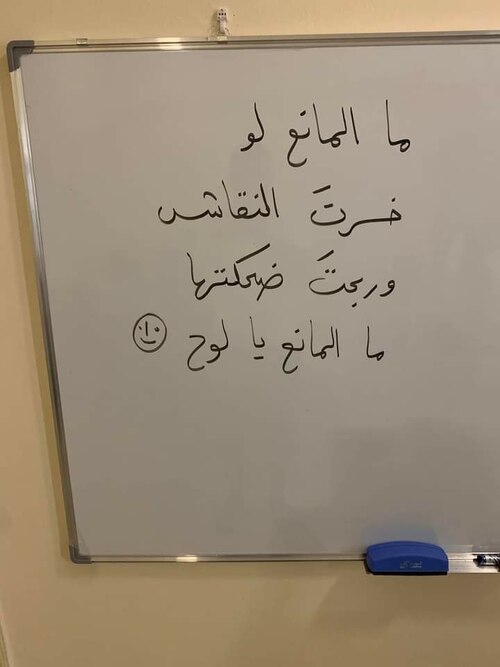 ما المانع لو
خسرتَ النقاش
وربحتَ ضحكتها
ما المانع يا لوح